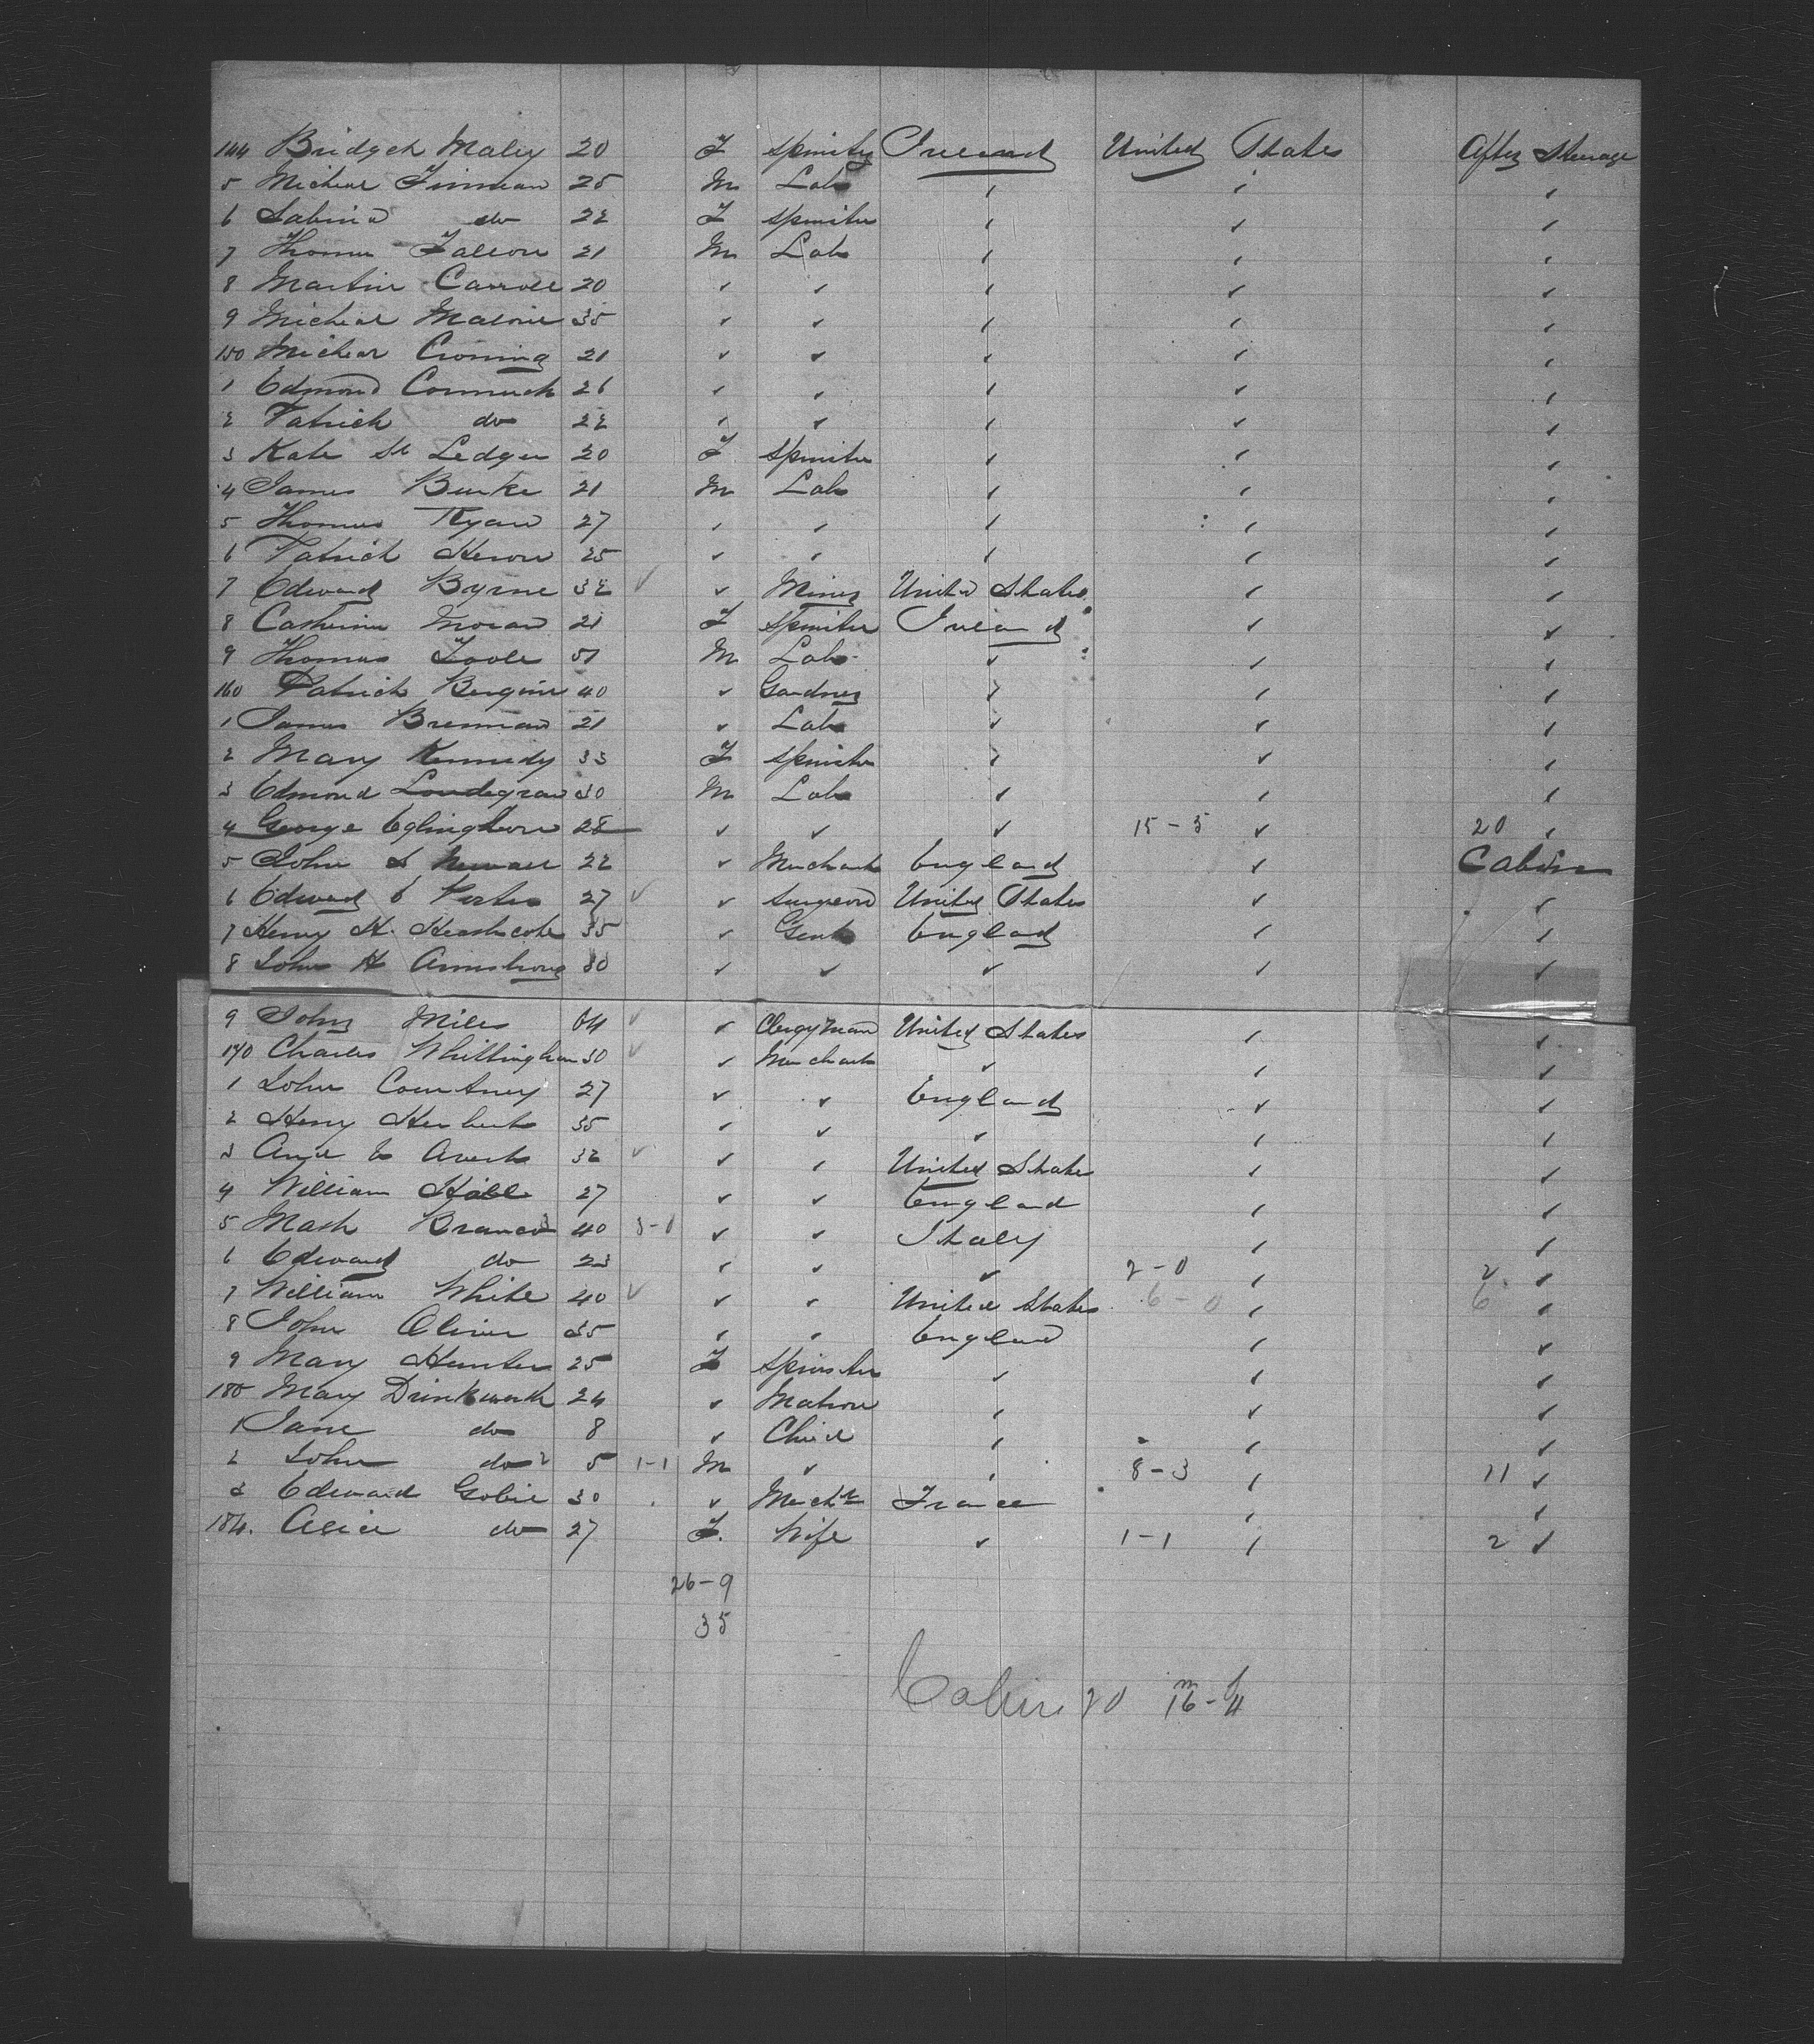 144 Bridget Maley 20 F Spinster Ireland United States After Steerage
5 Micheal Finnean 25 M Lab ✓ ✓ ✓
6 Sabina do 22 F Spinster ✓ ✓ ✓
7 Thomas Fallon 21 M Lab ✓ ✓ ✓
8 Martin Carroll 20 ✓ ✓ ✓ ✓ ✓
9 Micheal Malone 35 ✓ ✓ ✓ ✓ ✓
150 Micheal Croning 21 ✓ ✓ ✓ ✓ ✓
1 Edmond Cormack 26 ✓ ✓ ✓ ✓ ✓
2 Patrick do 22 ✓ ✓ ✓ ✓ ✓
3 Kate St Ledger 20 F Spinster ✓ ✓ ✓
4 James Burke 21 M Lab ✓ ✓ ✓
5 Thomas Ryan 27 ✓ ✓ ✓ ✓ ✓
6 Patrick Heron 25 ✓ ✓ ✓ ✓ ✓
7 Edward Byrne 32 ✓ ✓ Miner United States ✓ ✓
8 Catherine Moran 21 F Spinster Ireland ✓ ✓
9 Thomas Toole 51 M Lab ✓ ✓ ✓
160 Patrick Bergin 40 ✓ Gardner ✓ ✓ ✓
1 James Brennan 21 ✓ Lab ✓ ✓ ✓
2 Mary Kennedy 33 F Spinster ✓ ✓ ✓
3 Edmond Londegran 30 M Lab ✓ ✓ ✓
4 George Eglinghton 28 ✓ ✓ ✓ 15-5 ✓ 20 ✓
5 John Newall 22 ✓ Merchant England ✓ Cabin
6 Edward E Porter 27 ✓ ✓ Surgeon United States ✓ ✓
7 Henry H. Heathcote 35 ✓ Gent England ✓ ✓
8 John H Armstrong 30 ✓ ✓ ✓ ✓ ✓
9 John Miles 64 ✓ ✓ Clergyman United States ✓ ✓
170 Charles Whittingham 30 ✓ ✓ Merchant ✓ ✓ ✓
1 John Courtney 27 ✓ ✓ England ✓ ✓
2 Henry Herbert 35 ✓ ✓ ✓ ✓ ✓
3 32 ✓ ✓ ✓ United States ✓ ✓
4 William Hall 27 ✓ ✓ England ✓ ✓
5 40 3-0 ✓ ✓ Italy ✓ ✓
6 Edward do 23 ✓ ✓ ✓ 2-0 ✓ 2 ✓
7 William White 40 ✓ ✓ ✓ United States 6-0 ✓ 6 ✓
8 John Oliver 35 ✓ ✓ England ✓ ✓
9 Mary Hunter 25 F Spinster ✓ ✓ ✓
180 Mary Drinkworth 24 ✓ Matron ✓ ✓ ✓
1 Jane do 8 ✓ Child ✓ ✓ ✓
2 John do 5 1-1 M ✓ ✓ 8-3 ✓ 11 ✓
3 Edward Gobie 30 ✓ Mercht France ✓ ✓
184. Alice do 27 F. Wife ✓ 1-1 ✓ 2 ✓
26-9
35
Cabin 20 m 16 - f 4